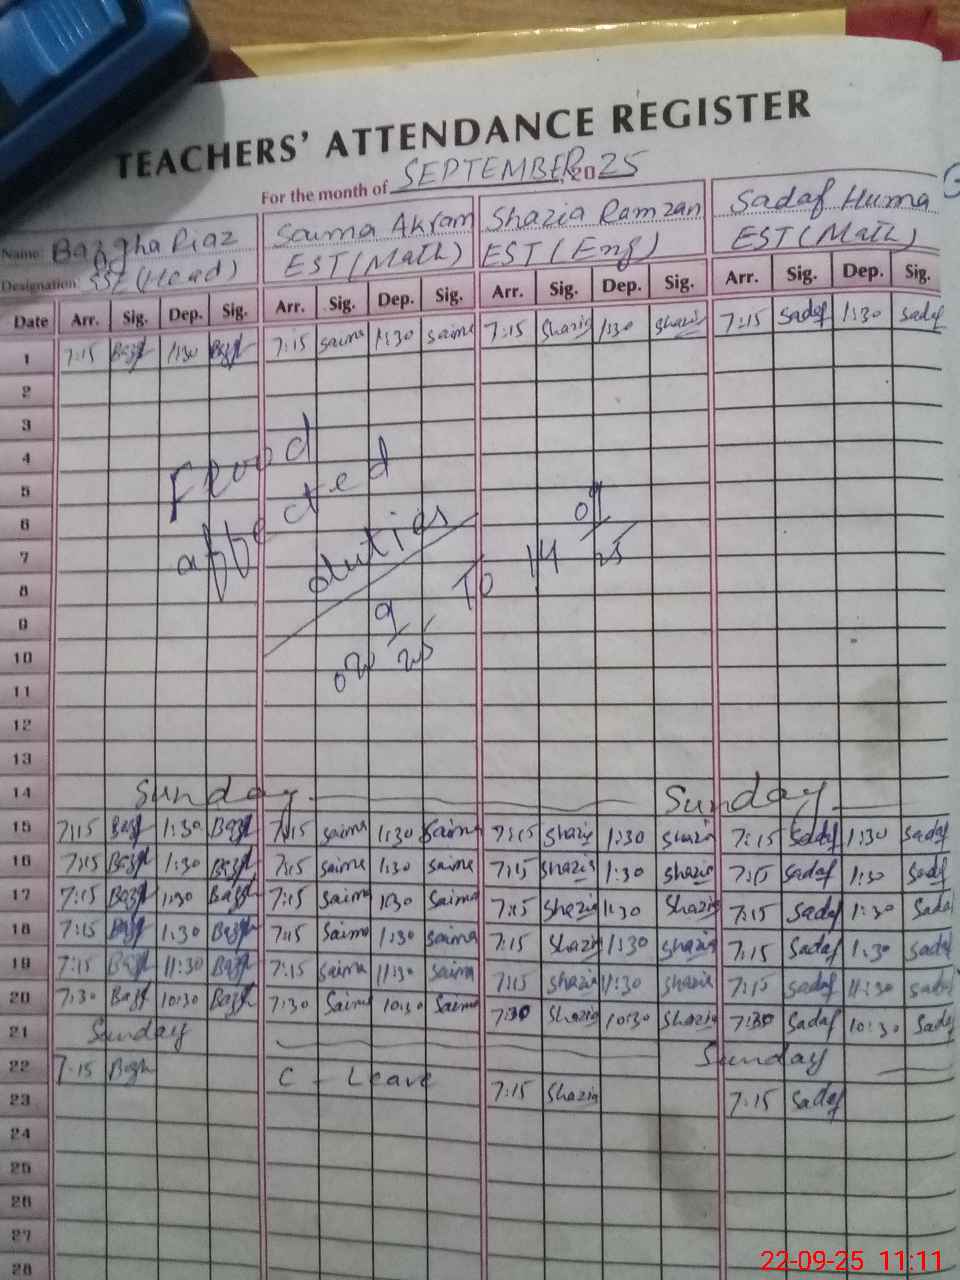 TEACHERS' ATTENDANCE REGISTER
For the month of SEPTEMBER, 2025
Name: Bazgha Riaz Saima Akram Shazia Ramzan Sadaf Huma
Designation: SSE (Head) EST (Math) EST (Eng) EST (Math)
Date Arr. Sig. Dep. Sig. Arr. Sig. Dep. Sig. Arr. Sig. Dep. Sig. Arr. Sig. Dep. Sig.
1 7:15 Bazgh 1:30 Bazgh 7:15 Saima 1:30 Saima 7:15 Shazia 1:30 Shazia 7:15 Sadaf 1:30 Sadaf
2
3
4 Flood
5 affected
6 duties
7
8
9 9 To 14 09
10 25 25
11
12
13
14 Sunday Sunday
15 7:15 Bazgh 1:30 Bazgh 7:15 Saima 1:30 Saima 7:15 Shazia 1:30 Shazia 7:15 Sadaf 1:30 Sadaf
16 7:15 Bazgh 1:30 Bazgh 7:15 Saima 1:30 Saima 7:15 Shazia 1:30 Shazia 7:15 Sadaf 1:30 Sadaf
17 7:15 Bazgh 1:30 Bazgh 7:15 Saima 1:30 Saima 7:15 Shazia 1:30 Shazia 7:15 Sadaf 1:30 Sada
18 7:15 Bazgh 1:30 Bazgh 7:15 Saima 1:30 Saima 7:15 Shazia 1:30 Shazia 7:15 Sadaf 1:30 Sada
19 7:15 Bazgh 11:30 Bazgh 7:15 Saima 11:30 Saima 7:15 Shazia 11:30 Shazia 7:15 Sadaf 11:30 Sada
20 7:30 Bazgh 10:30 Bazgh 7:30 Saima 10:30 Saima 7:30 Shazia 10:30 Shazia 7:30 Sadaf 10:30 Sada
21 Sunday Sunday
22 7:15 Bazgh C - Leave 7:15 Shazia 7:15 Sadaf
23
24
25
26
27
28
22-09-25 11:11